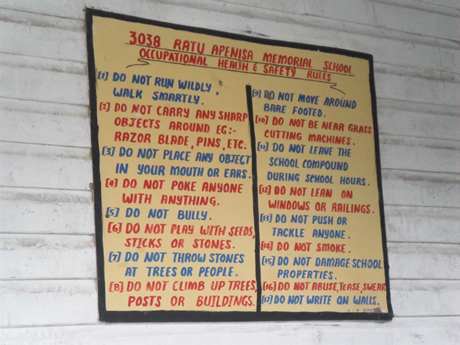 3038 RATU APENISA MEMORIAL SCHOOL
OCCUPATIONAL HEALTH & SAFETY RULES
[1] DO NOT RUN WILDLY.
WALK SMARTLY.
[2] DO NOT CARRY ANY SHARP
OBJECTS AROUND EG:-
RAZOR BLADE, PINS, ETC.
[3] DO NOT PLACE ANY OBJECT
IN YOUR MOUTH OR EARS.
[4] DO NOT POKE ANYONE
WITH ANYTHING.
[5] DO NOT BULLY.
[6] DO NOT PLAY WITH SEEDS,
STICKS OR STONES.
[7] DO NOT THROW STONES
AT TREES OR PEOPLE.
[8] DO NOT CLIMB UP TREES,
POSTS OR BUILDINGS.
[9] DO NOT MOVE AROUND
BARE FOOTED.
[10] DO NOT BE NEAR GRASS
CUTTING MACHINES.
[11] DO NOT LEAVE THE
SCHOOL COMPOUND
DURING SCHOOL HOURS.
[12] DO NOT LEAN ON
WINDOWS OR RAILINGS.
[13] DO NOT PUSH OR
TACKLE ANYONE.
[14] DO NOT SMOKE.
[15] DO NOT DAMAGE SCHOOL
PROPERTIES.
[16] DO NOT ABUSE, TEASE, SWEAR
[17] DO NOT WRITE ON WALLS.